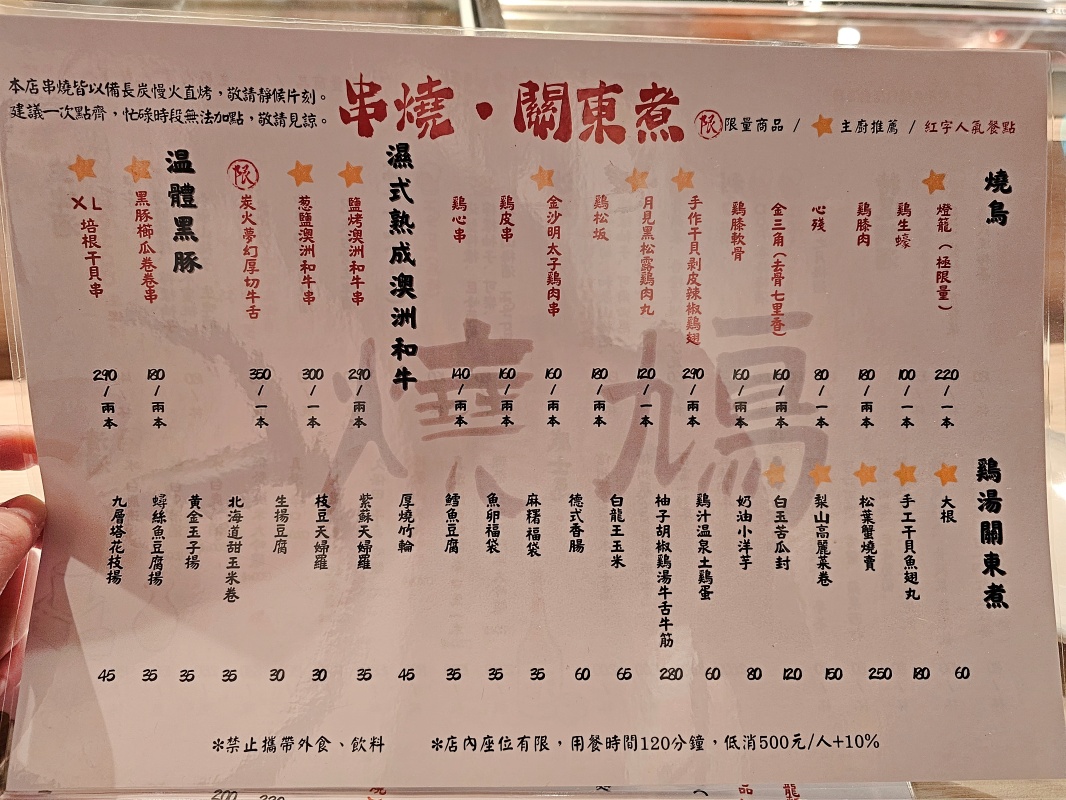 本店串燒皆以備長炭慢火直烤,敬請靜候片刻。
建議一次點齊,忙碌時段無法加點,敬請見諒。
串燒·關東煮
限 限量商品 / 主廚推薦 / 紅字人氣餐點
燒鳥
燈籠(極限量) 220/一本
鷄生蠔 100/一本
鷄膝肉 180/兩本
心殘 80/一本
金三角(去骨七里香) 160/兩本
鷄膝軟骨 160/兩本
手作干貝剝皮辣椒鷄翅 290/兩本
月見黑松露鷄肉丸 120/一本
鷄松坂 180/兩本
金沙明太子鷄肉串 160/兩本
鷄皮串 160/兩本
鷄心串 140/兩本
濕式熟成澳洲和牛
鹽烤澳洲和牛串 290/兩本
葱鹽澳洲和牛串 300/一本
限 炭火夢幻厚切牛舌 350/一本
温體黑豚
黑豚櫛瓜卷卷串 180/兩本
XL培根干貝串 290/兩本
燒鳩
鷄湯關東煮
大根 60
手工干貝魚翅丸 180
松葉蟹燒賣 250
梨山高麗菜卷 150
白玉苦瓜封 120
奶油小洋芋 80
鷄汁温泉土鷄蛋 60
柚子胡椒鷄湯牛舌牛筋 280
白龍王玉米 65
德式香腸 60
麻糬福袋 35
魚卵福袋 35
鱈魚豆腐 35
厚燒竹輪 45
紫蘇天婦羅 35
枝豆天婦羅 30
生揚豆腐 30
北海道甜玉米卷 35
黃金玉子揚 35
蟳絲魚豆腐揚 35
九層塔花枝揚 45
*禁止攜帶外食、飲料
*店內座位有限,用餐時間120分鐘,低消500元/人+10%